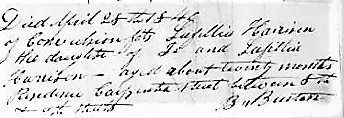 Died April 28th 1846
of Convulsion fits Saphllia Harrison
the daughter of Jo and Sapthia
Harrison - aged about twenty months
Residence Carpenter street between 8th
& 9th streets By Burton